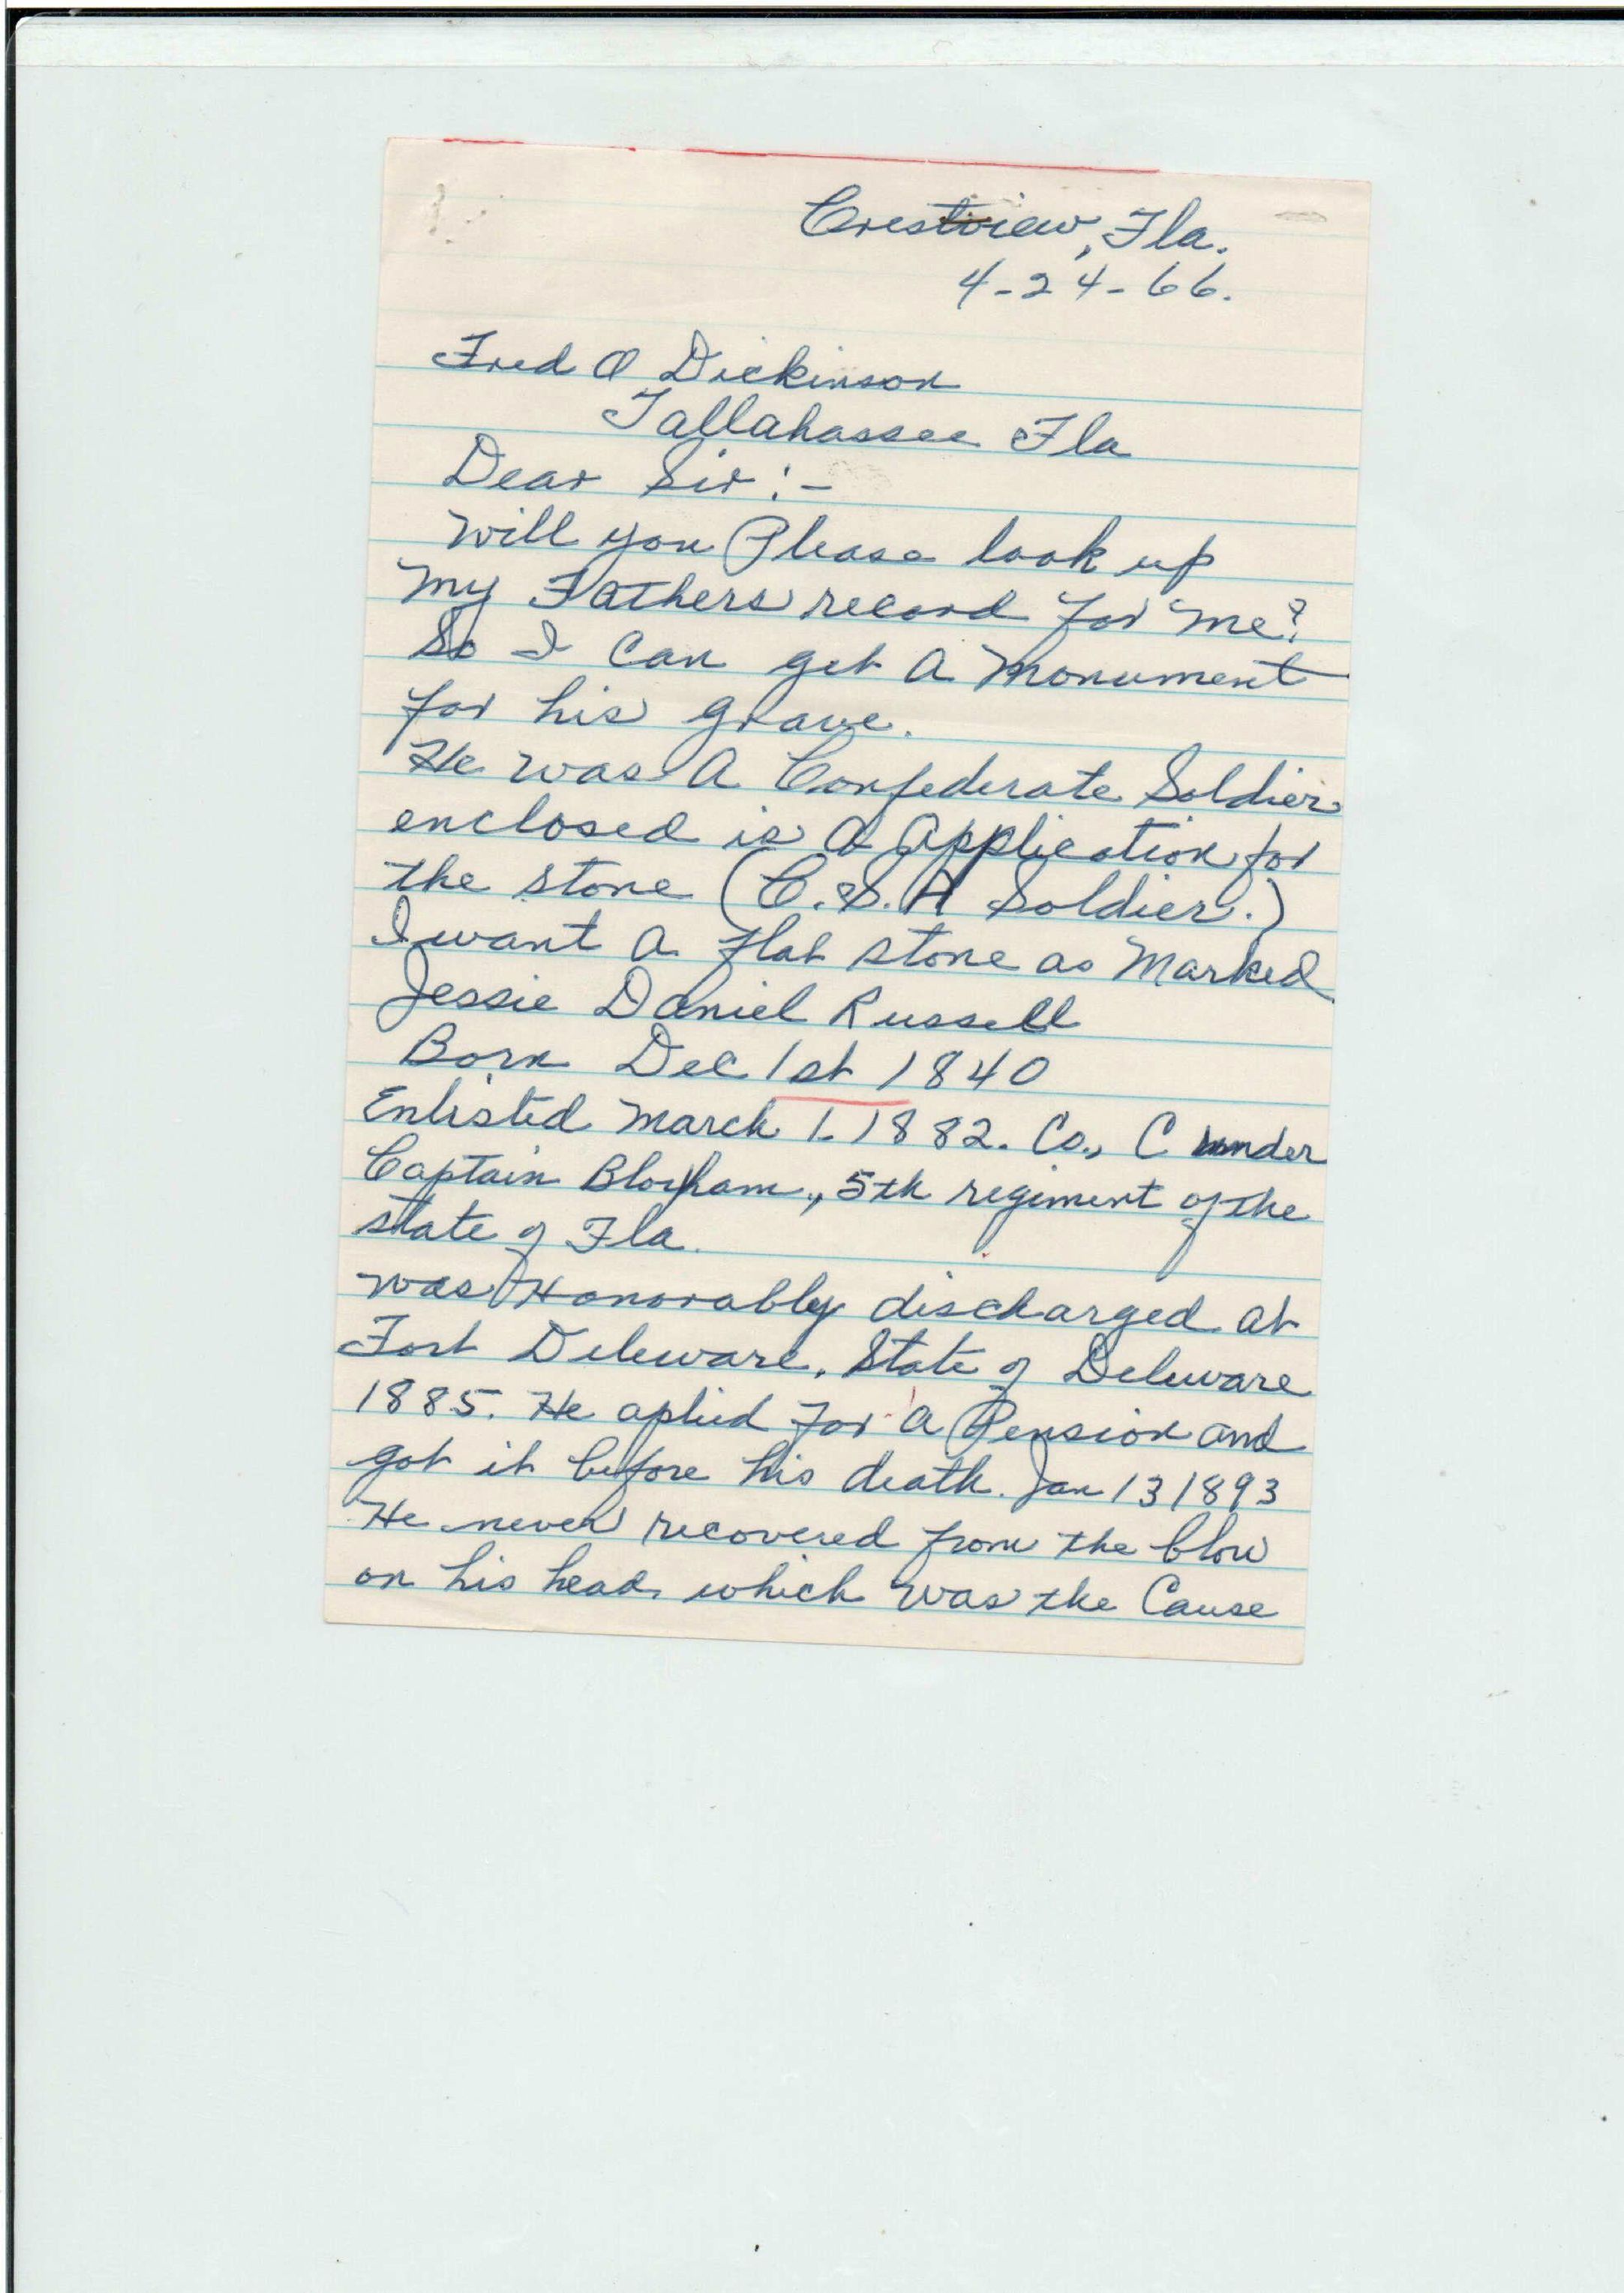 Crestview, Fla.
4-24-66.
Fred O Dickinson
Tallahassee Fla
Dear Sir:-
Will you Please look up
My Fathers record for me?
So I Can get A Monument
for his grave.
He was A Confederate Soldier
enclosed is A Application for
the stone (C.S.A Soldier.)
I want A flat stone as Marked
Jessie Daniel Russell
Born Dec 1st 1840
Enlisted March 1. 1882. Co., C under
Captain Bloxham., 5th regiment of the
state of Fla.
was Honorably discharged at
Fort Deleware, State of Deleware
1885. He aplied for A Pension and
got it before his death. Jan 13 1893
He never recovered from the blow
on his head, which was the Cause